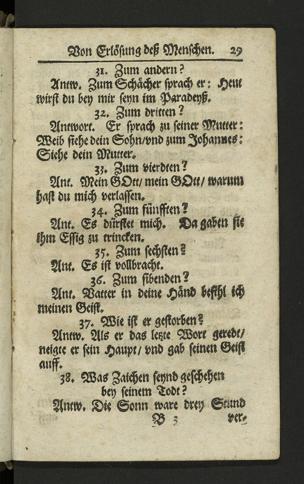 Von Erlösung deß Menschen. 29
31. Zum andern?
Antw. Zum Schächer sprach er: Heut
wirst du bey mir seyn im Paradeyß.
32. Zum dritten?
Antwort. Er sprach zu seiner Mutter:
Weib siehe dein Sohn/vnd zum Johannes:
Siehe dein Mutter.
33. Zum vierdten?
Ant. Mein GOtt/ mein GOtt/ warum
hast du mich verlassen.
34. Zum fünfften?
Ant. Es dürstet mich. Da gaben sie
ihm Essig zu trincken.
35. Zum sechsten?
Ant. Es ist vollbracht.
36. Zum sibenden?
Ant. Vatter in deine Händ befihl ich
meinen Geist.
37. Wie ist er gestorben?
Antw. Als er das letzte Wort geredt/
neigte er sein Haupt/ vnd gab seinen Geist
auff.
38. Was Zaichen seynd geschehen
bey seinem Todt?
Antw. Die Sonn ware drey Stund
B 3 ver-